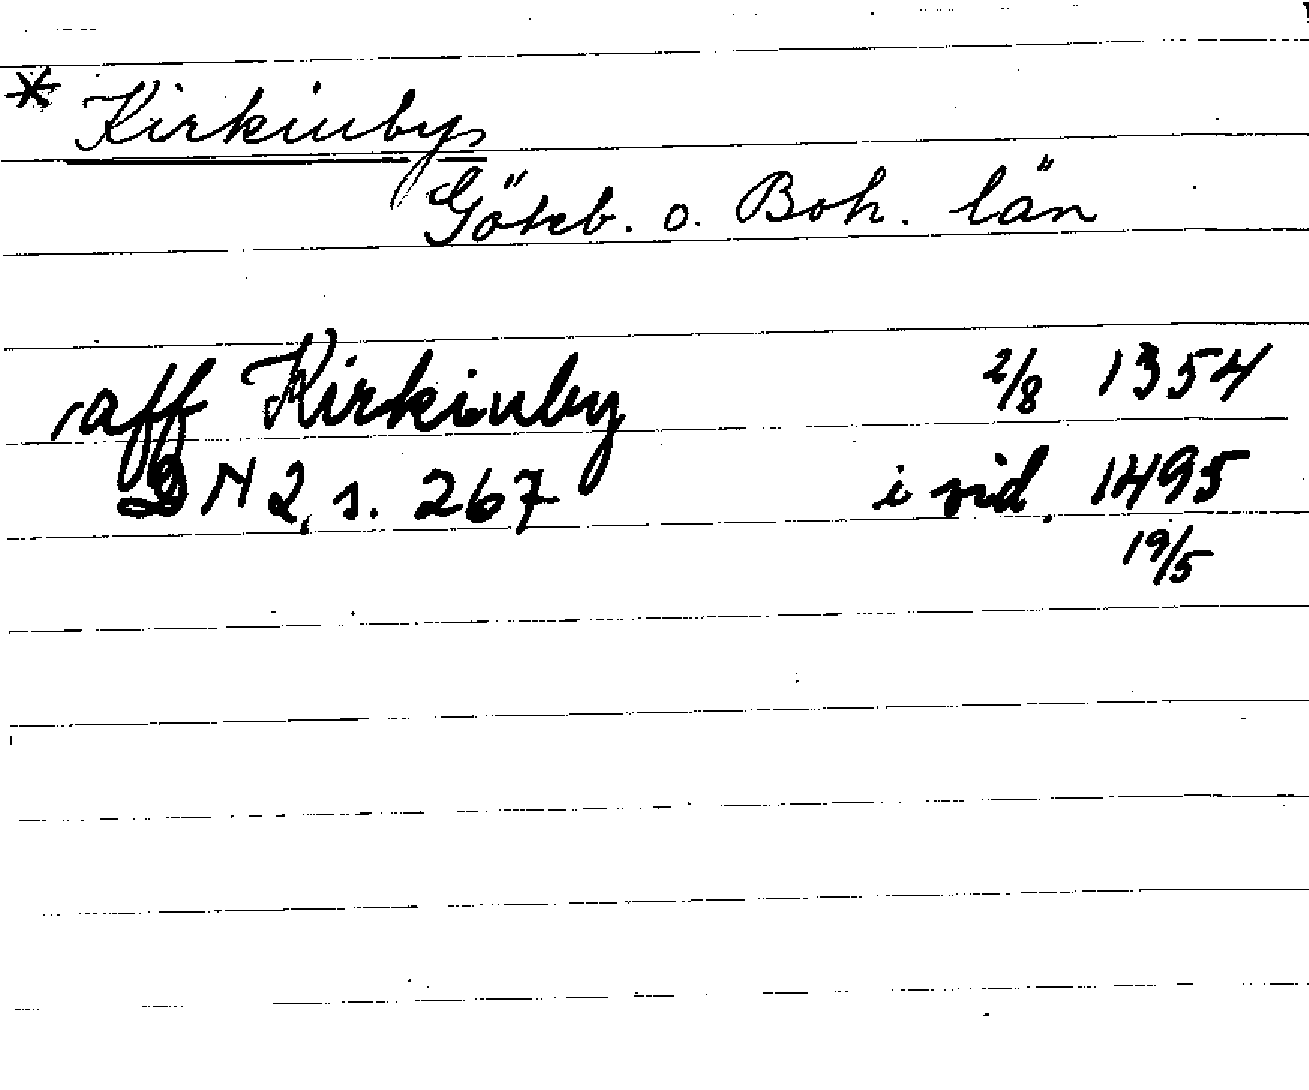 * Kirkinby
Göteb. o. Boh. län
aff Kirkinby 2/8 1354
DN 2, s. 267 i vid. 1495
19/5